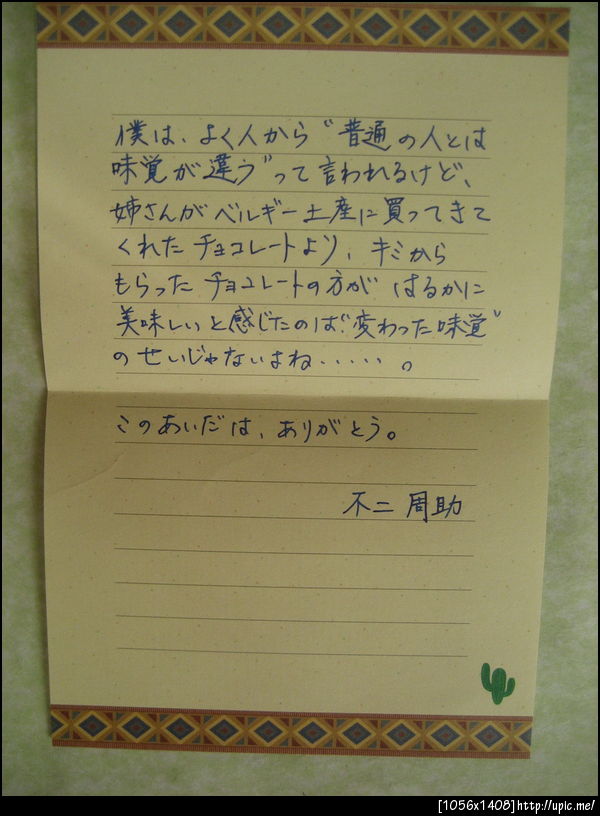 僕は、よく人から“普通の人とは
味覚が違う”って言われるけど、
姉さんがベルギー土産に買ってきて
くれたチョコレートより、キミから
もらったチョコレートの方が はるかに
美味しいと感じたのは“変わった味覚”
のせいじゃないよね・・・・・。
このあいだは、ありがとう。
不二 周助
[1056x1408]http://upic.me/